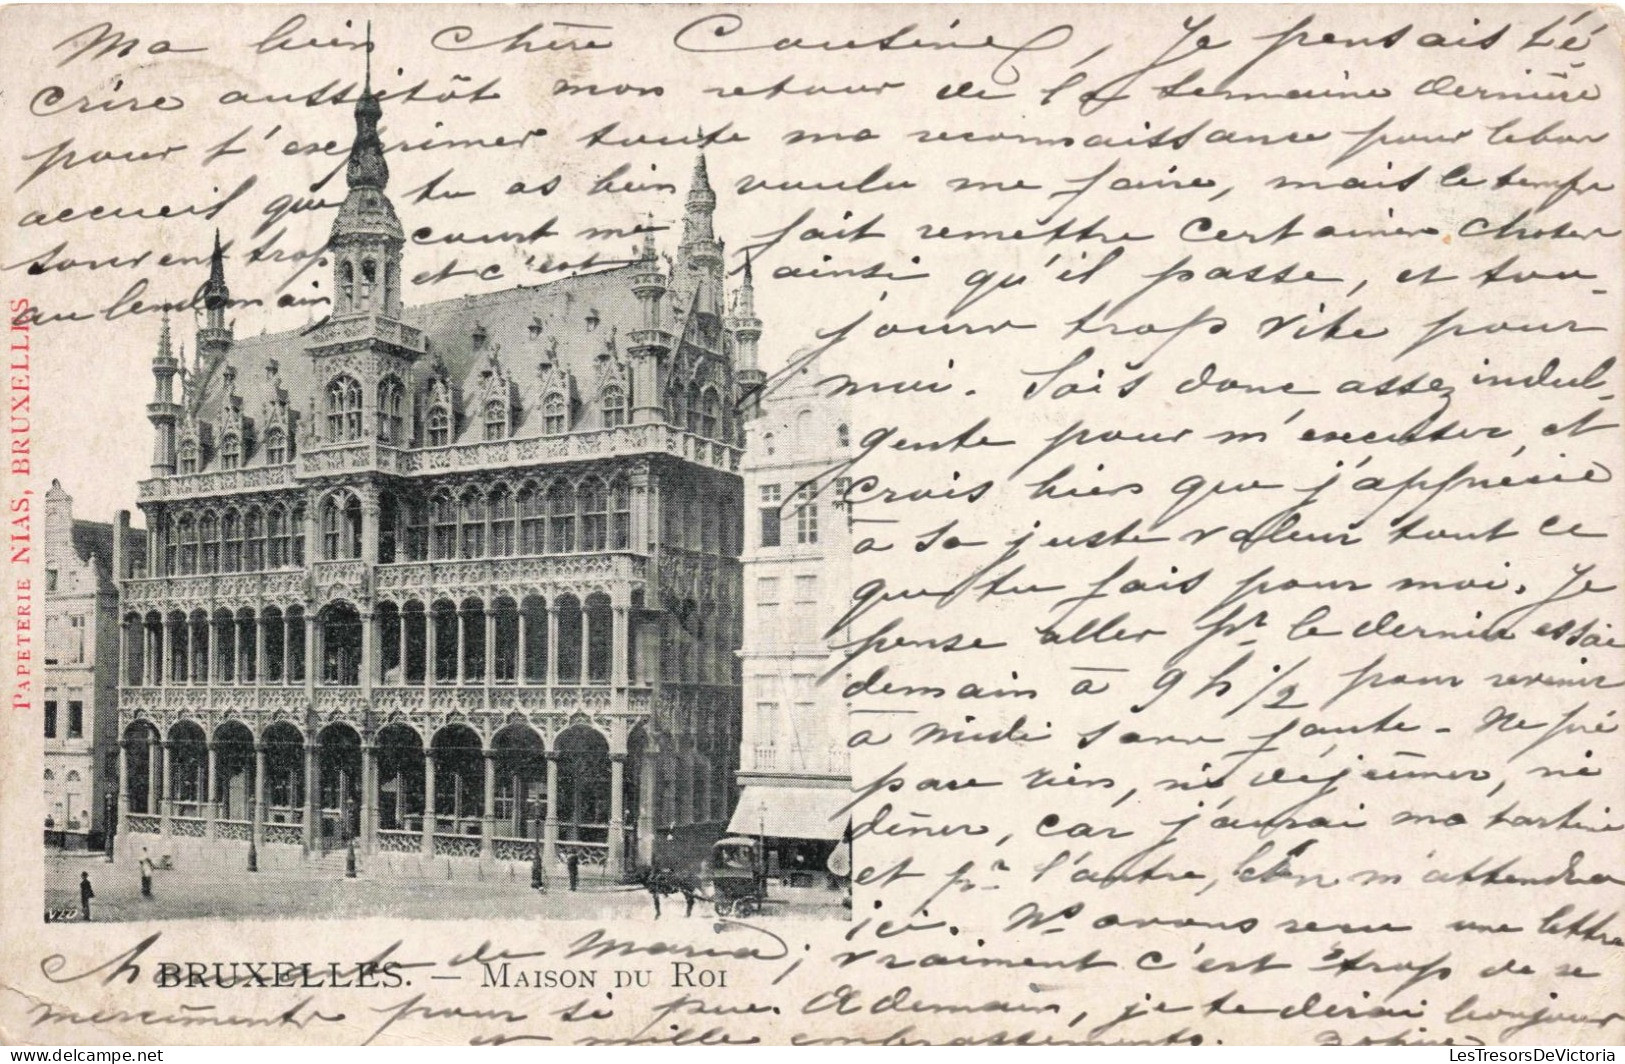 Ma bien chère Cousine, Je pensais t'é
crire aussitôt mon retour de la semaine dernière
pour t'exprimer toute ma reconnaissance pour le bon
accueil que tu as bien voulu me faire, mais le temps
souvent trop court me fait remettre certaines choses
au lendemain, et c'est ainsi qu'il passe, et tou-
jours trop vite pour
moi. Sois donc assez indul-
gente pour m'excuser, et
crois bien que j'apprécie
à sa juste valeur tout ce
que tu fais pour moi. Je
pense aller pr le dernier essai
demain à 9 h 1/2 pour revenir
à midi sans faute - Ne pré
pare rien, ni déjeûner, ni
dîner, car j'aurai ma tartine
et pr l'autre, l'on m'attendra
ici. Ns avons reçu une lettre
charmante de Maria; vraiment c'est trop de re
merciments pour si peu. A demain, je te dirai bonjour
et mille embrassements.
PAPETERIE NIAS, BRUXELLES
VED
BRUXELLES. — MAISON DU ROI
LesTresorsDeVictoria